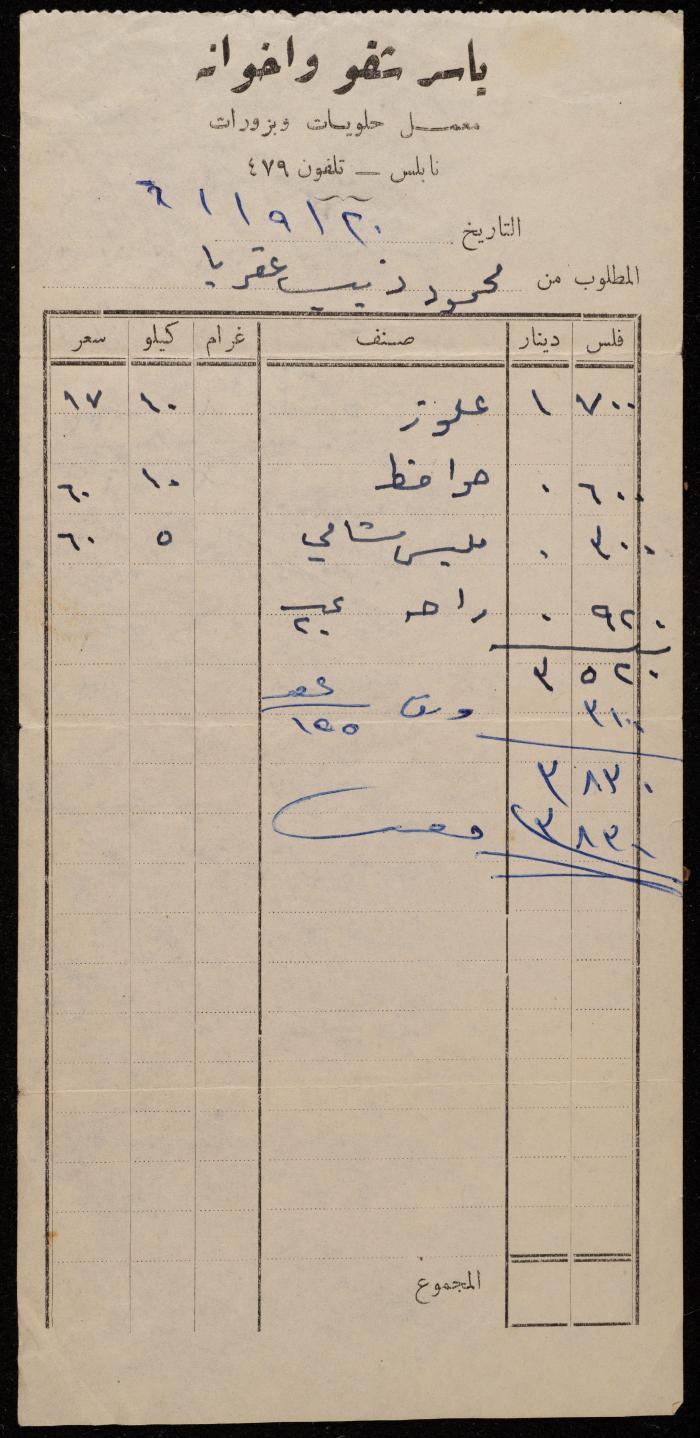 ياسر شقو واخوانه
معمل حلويات وبزورات
نابلس — تلفون ٤٧٩
التاريخ ٢٠ / ٩ / ١١
المطلوب من محمود ذيب عقربا
فلس دينار صنف غرام كيلو سعر
٧٠٠ ١ علوز ١٠ ١٧
٦٠٠ ٠ ١٠ ٦٠
٣٠٠ ٠ ملبس شامي ٥ ٦٠
٩٢٠ ٠ راحه
٥٢٠ ٣
٣١٠ ورق
٨٣٠ ٣
٨٣٠ ٣
المجموع